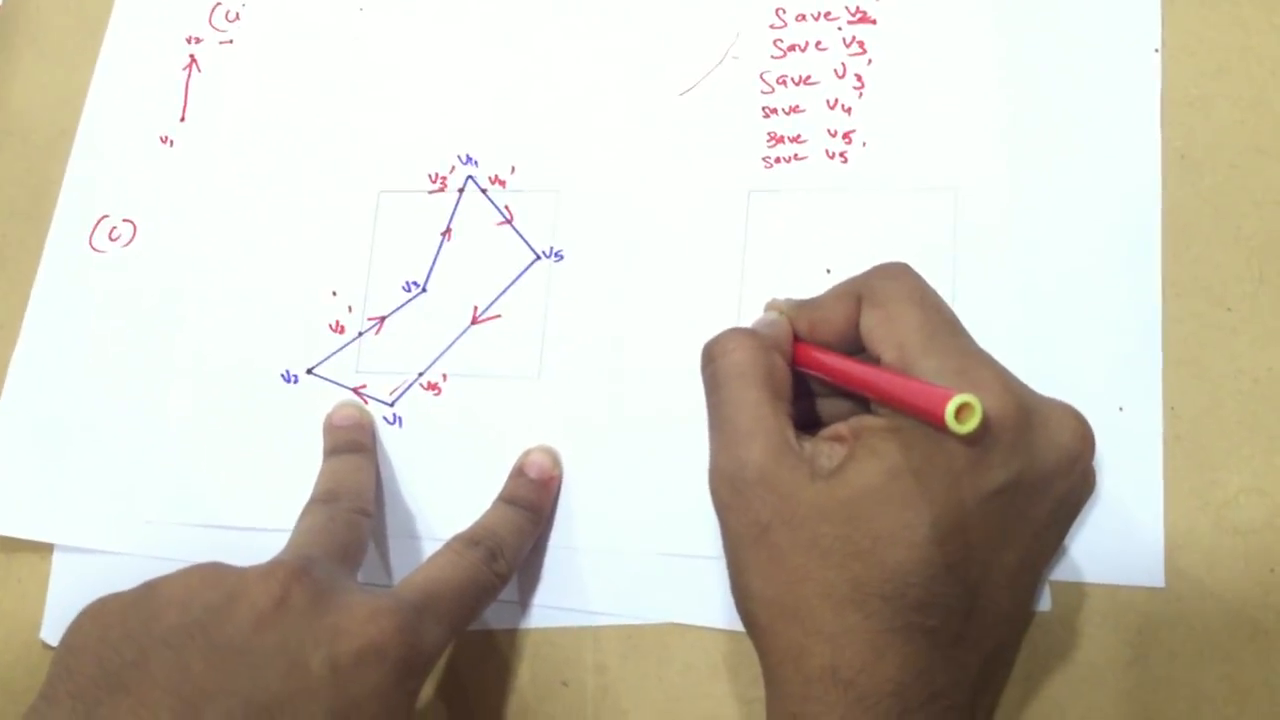 v2
v1
(c)
Save v2'
Save v3
Save v3'
save v4'
save v5,
save v5'
v4
v3'
v4'
v5
v3
v2'
v2
v5'
v1